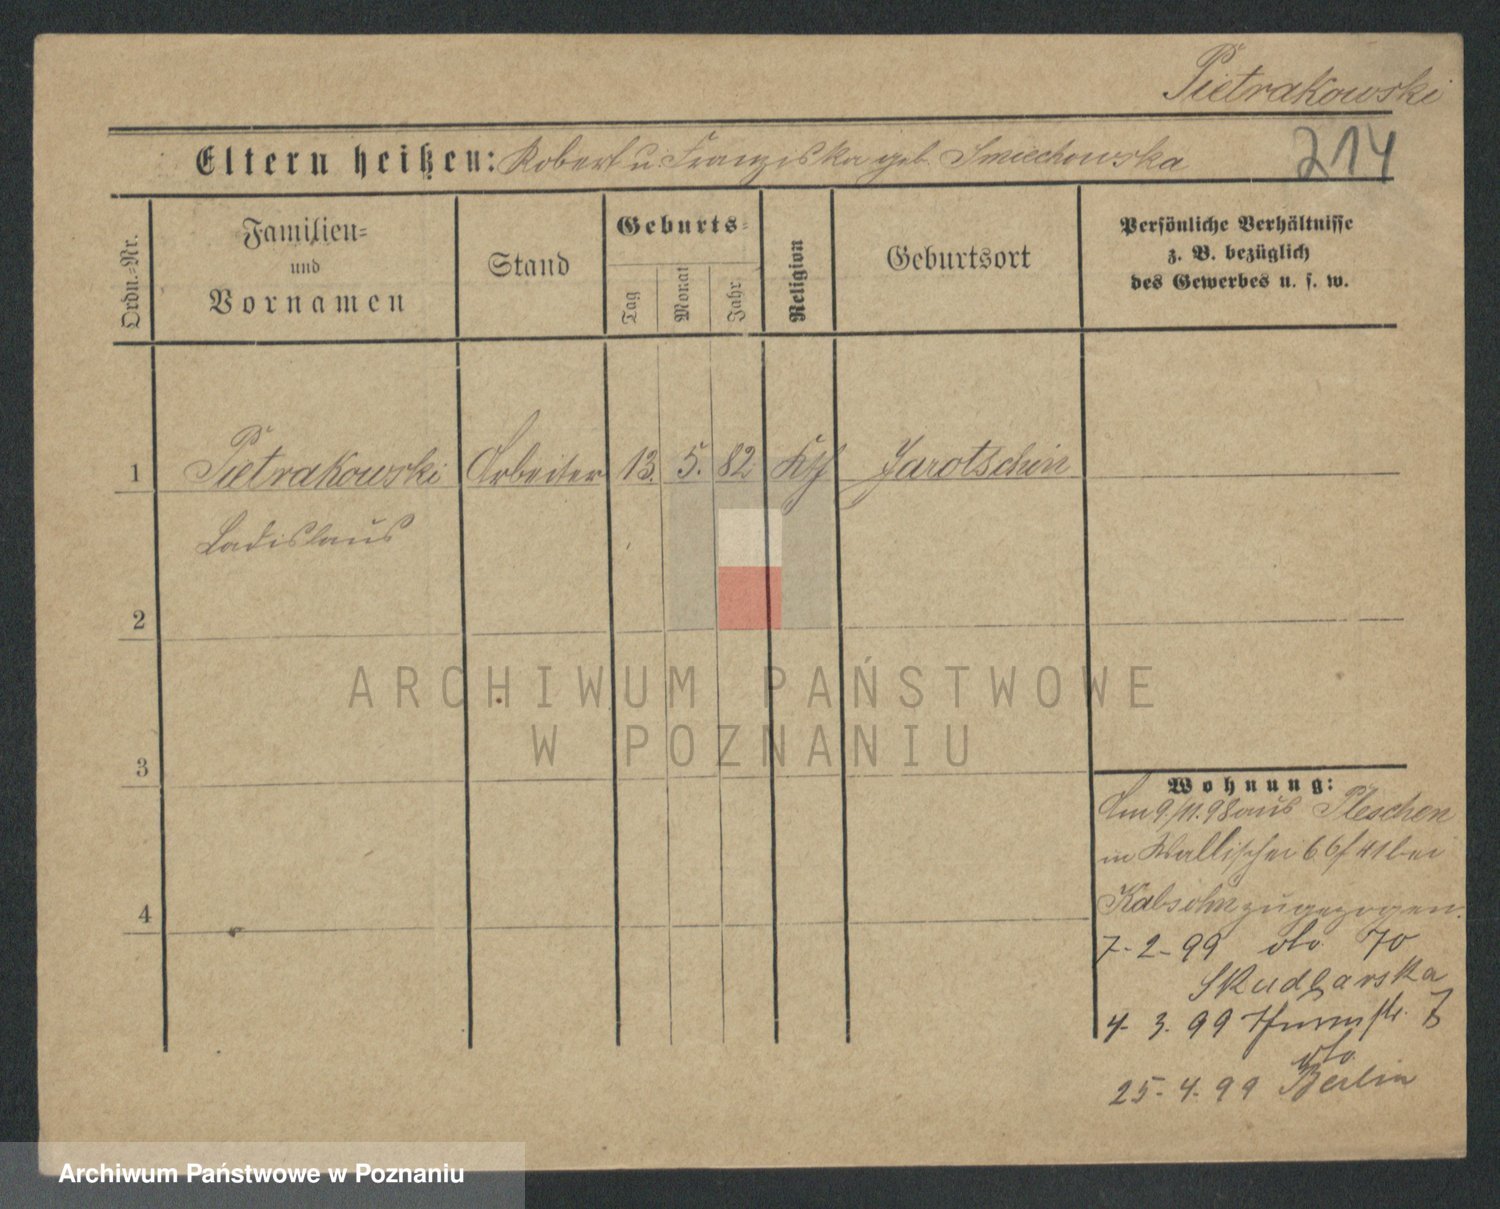 Pietrakowski
Eltern heißen: Robert u. Franziska geb. Smiechowska
214
Ordn.-Nr.
Familien-
und
Vornamen
Stand
Geburts-
Tag
Monat
Jahr
Religion
Geburtsort
Persönliche Verhältnisse
z. B. bezüglich
des Gewerbes u. s. w.
1 Pietrakowski Arbeiter 13. 5. 82 Kth Jarotschin
Ladislaus
2
3
4
ARCHIWUM PAŃSTWOWE
W POZNANIU
Wohnung:
Am 9/11.98 aus Pleschen
in Wallischei 66/41 bei
zugezogen.
7-2-99 dto. 70
Skudlarska
4. 3. 99 Thurmstr. 7
dto.
25-4.99 Berlin
Archiwum Państwowe w Poznaniu